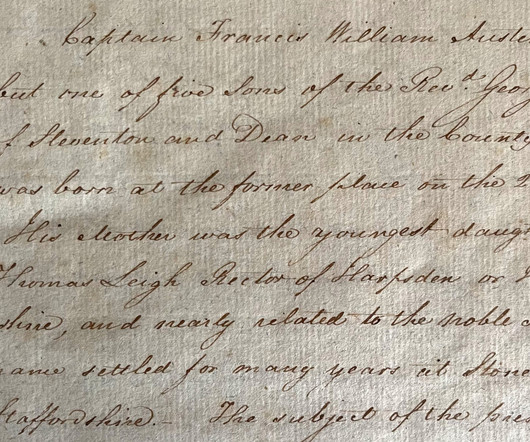 Captain Francis William Auste
but one of five Sons of the Revd. Geor
f Steventon and Dean in the County
was born at the former place on the 2
His Mother was the youngest daught
Thomas Leigh Rector of Harpsden or H
shire, and nearly related to the noble
name settled for many years at Stone
Staffordshire.- The subject of the pre